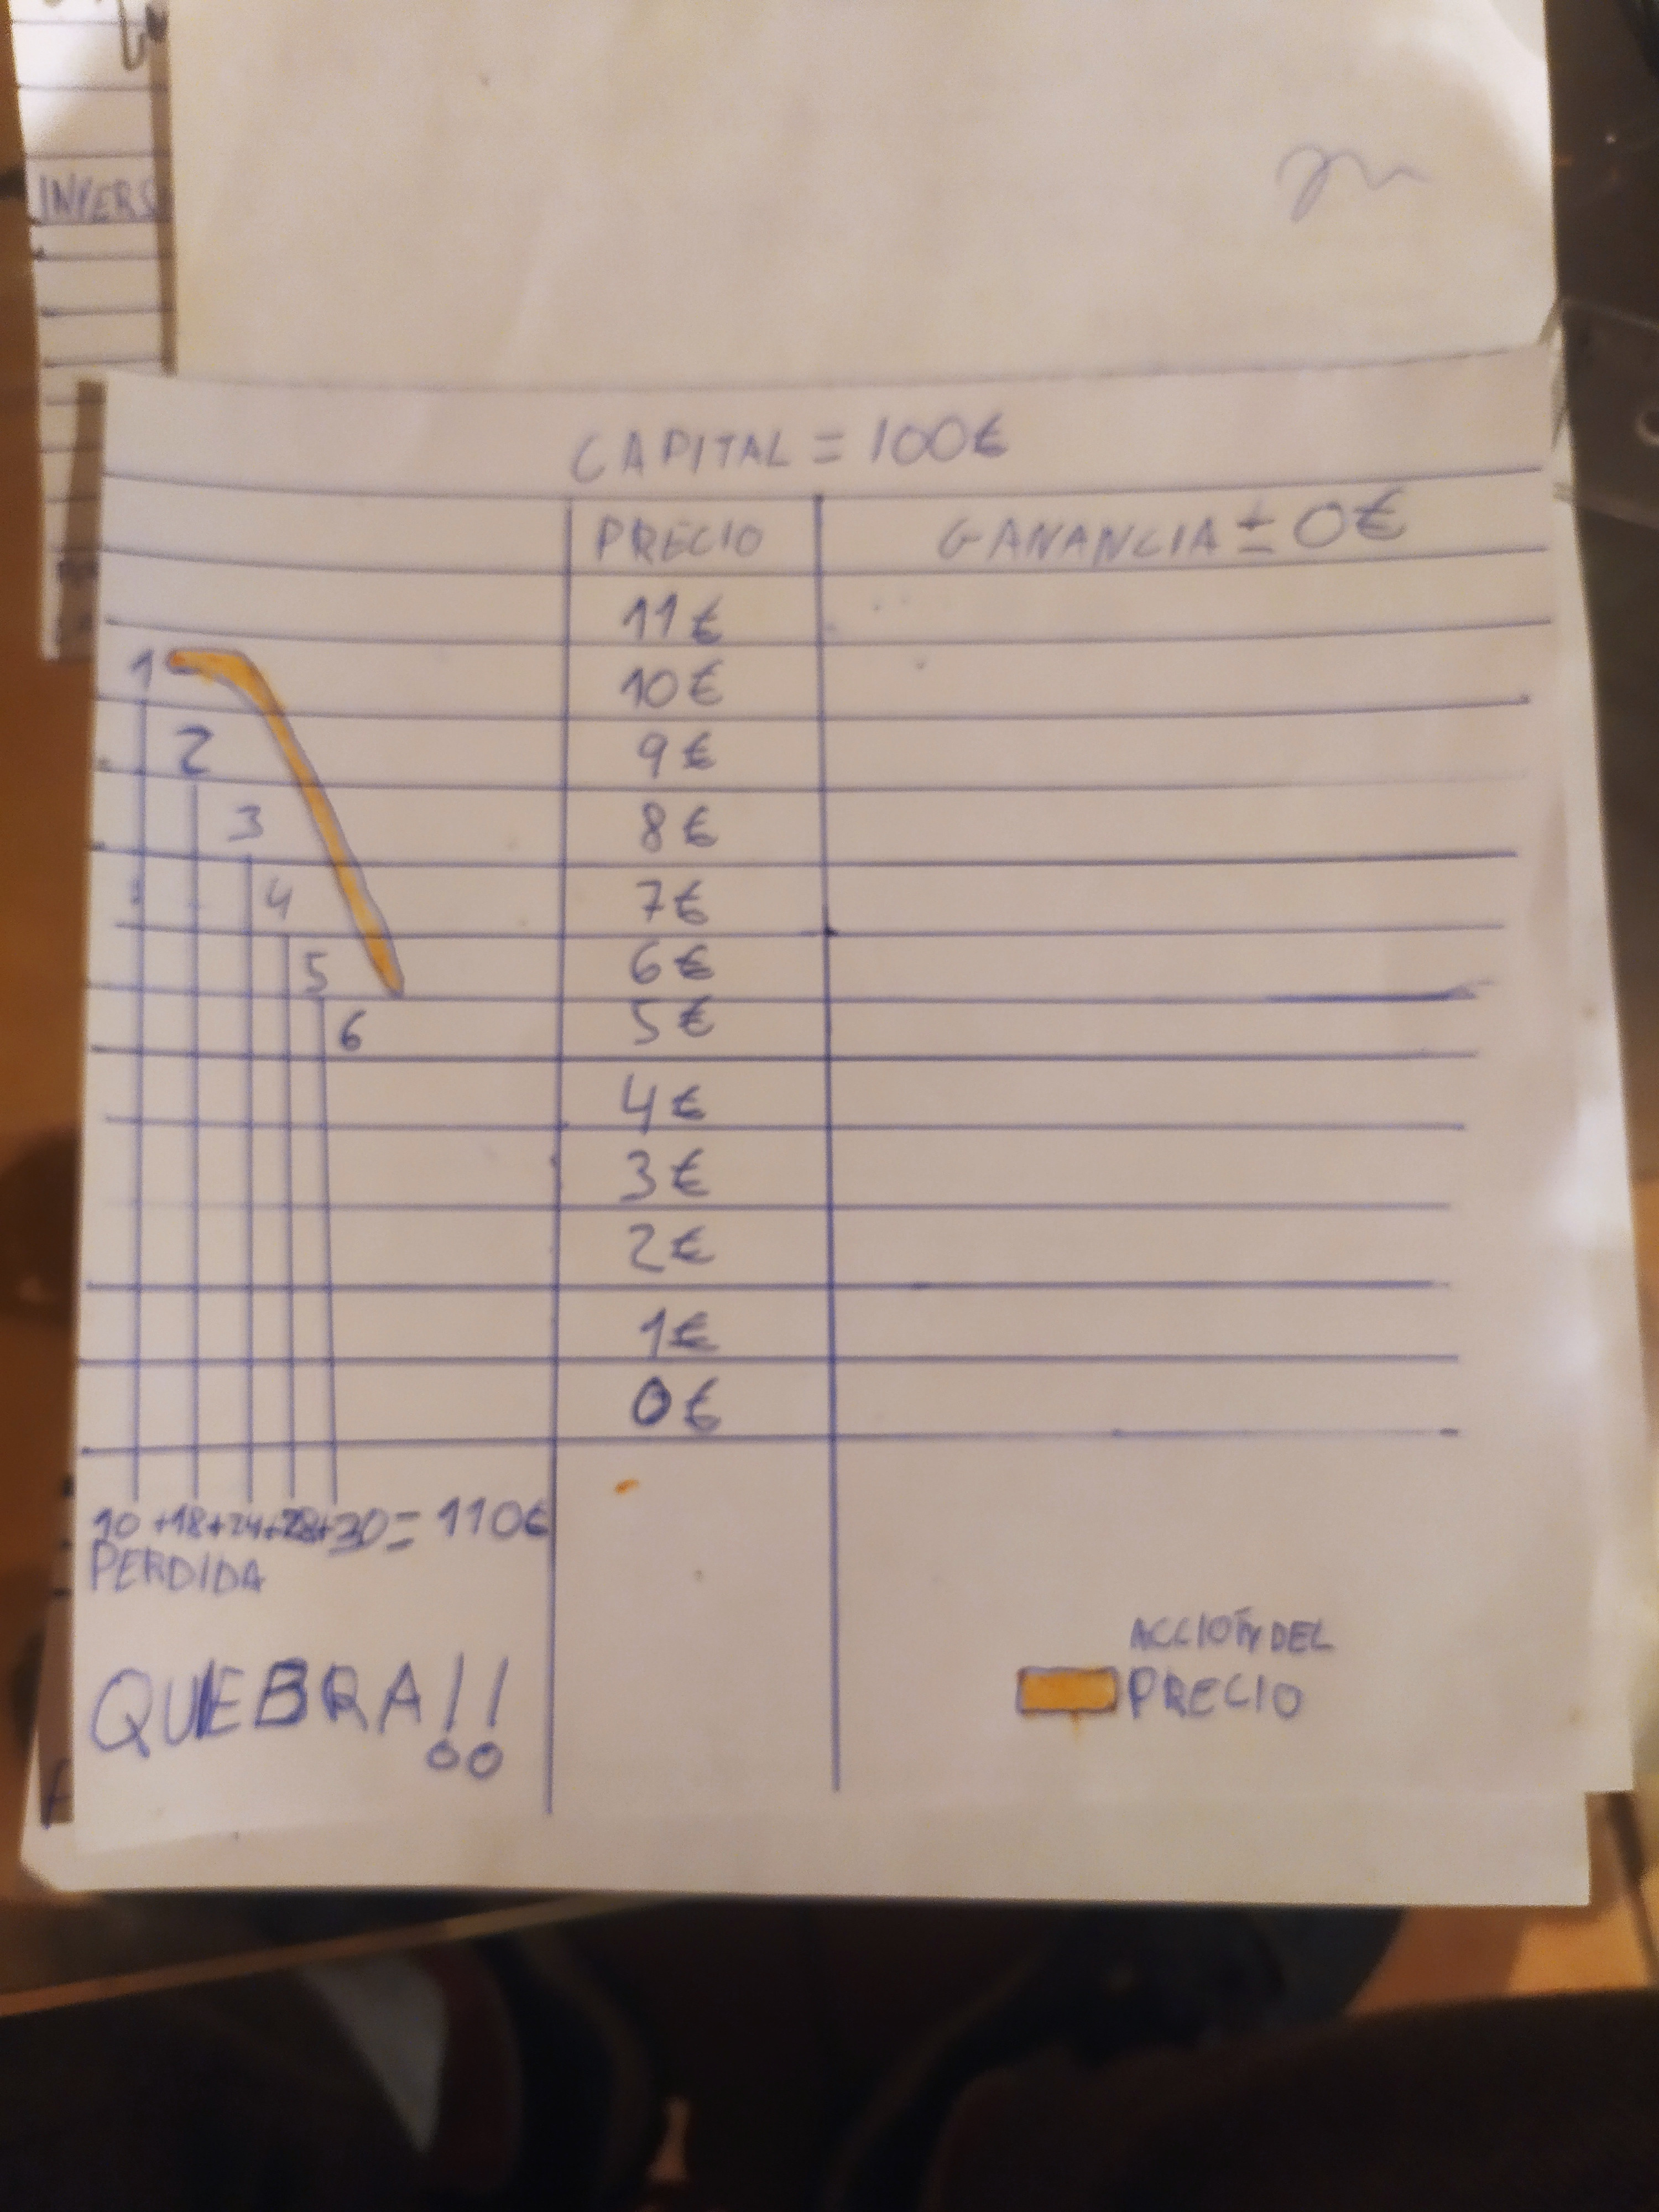 INVERS
CAPITAL = 100€
PRECIO GANANCIA ± 0€
11€
1 10€
2 9€
3 8€
4 7€
5 6€
6 5€
4€
3€
2€
1€
0€
10+18+24+28+30=110€
PERDIDA
ACCIÓN DEL
QUEBRA!! PRECIO